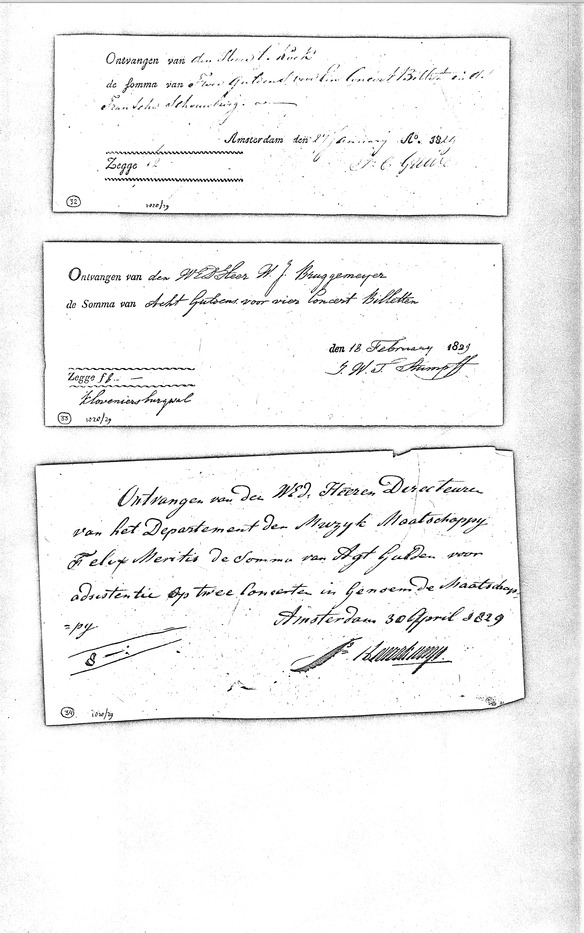 Ontvangen van den
de somma van Twee Guldens voor Een Concert Billet in de
Fransche Schouwburg.
Amsterdam den 27 January Aº. 1829
Zegge
32 1020/29
Ontvangen van den WEDHeer W. J. Bruggemeyer
de Somma van Acht Guldens voor vier Concert Billetten
den 18 February 1829
J. W. T. Stumpff
Zegge f 8.. —
Kloveniersburgwal
33 1020/29
Ontvangen van den WEd. Heeren Directeuren
van het Departement der Muzyk Maatschappy
Felix Meritis de Somma van Agt Gulden voor
adsistentie op twee Concerten in Genoemde Maatschap
=py
Amsterdam 30 April 1829
8 —:
34 1020/29